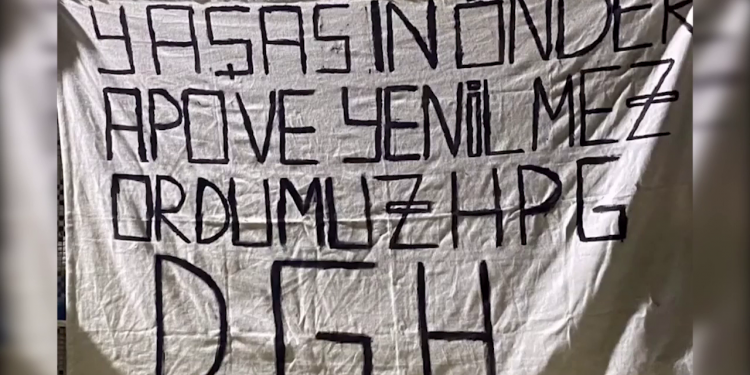 YAŞASIN ÖNDER
APO VE YENİLMEZ
ORDUMUZ HPG
DGH